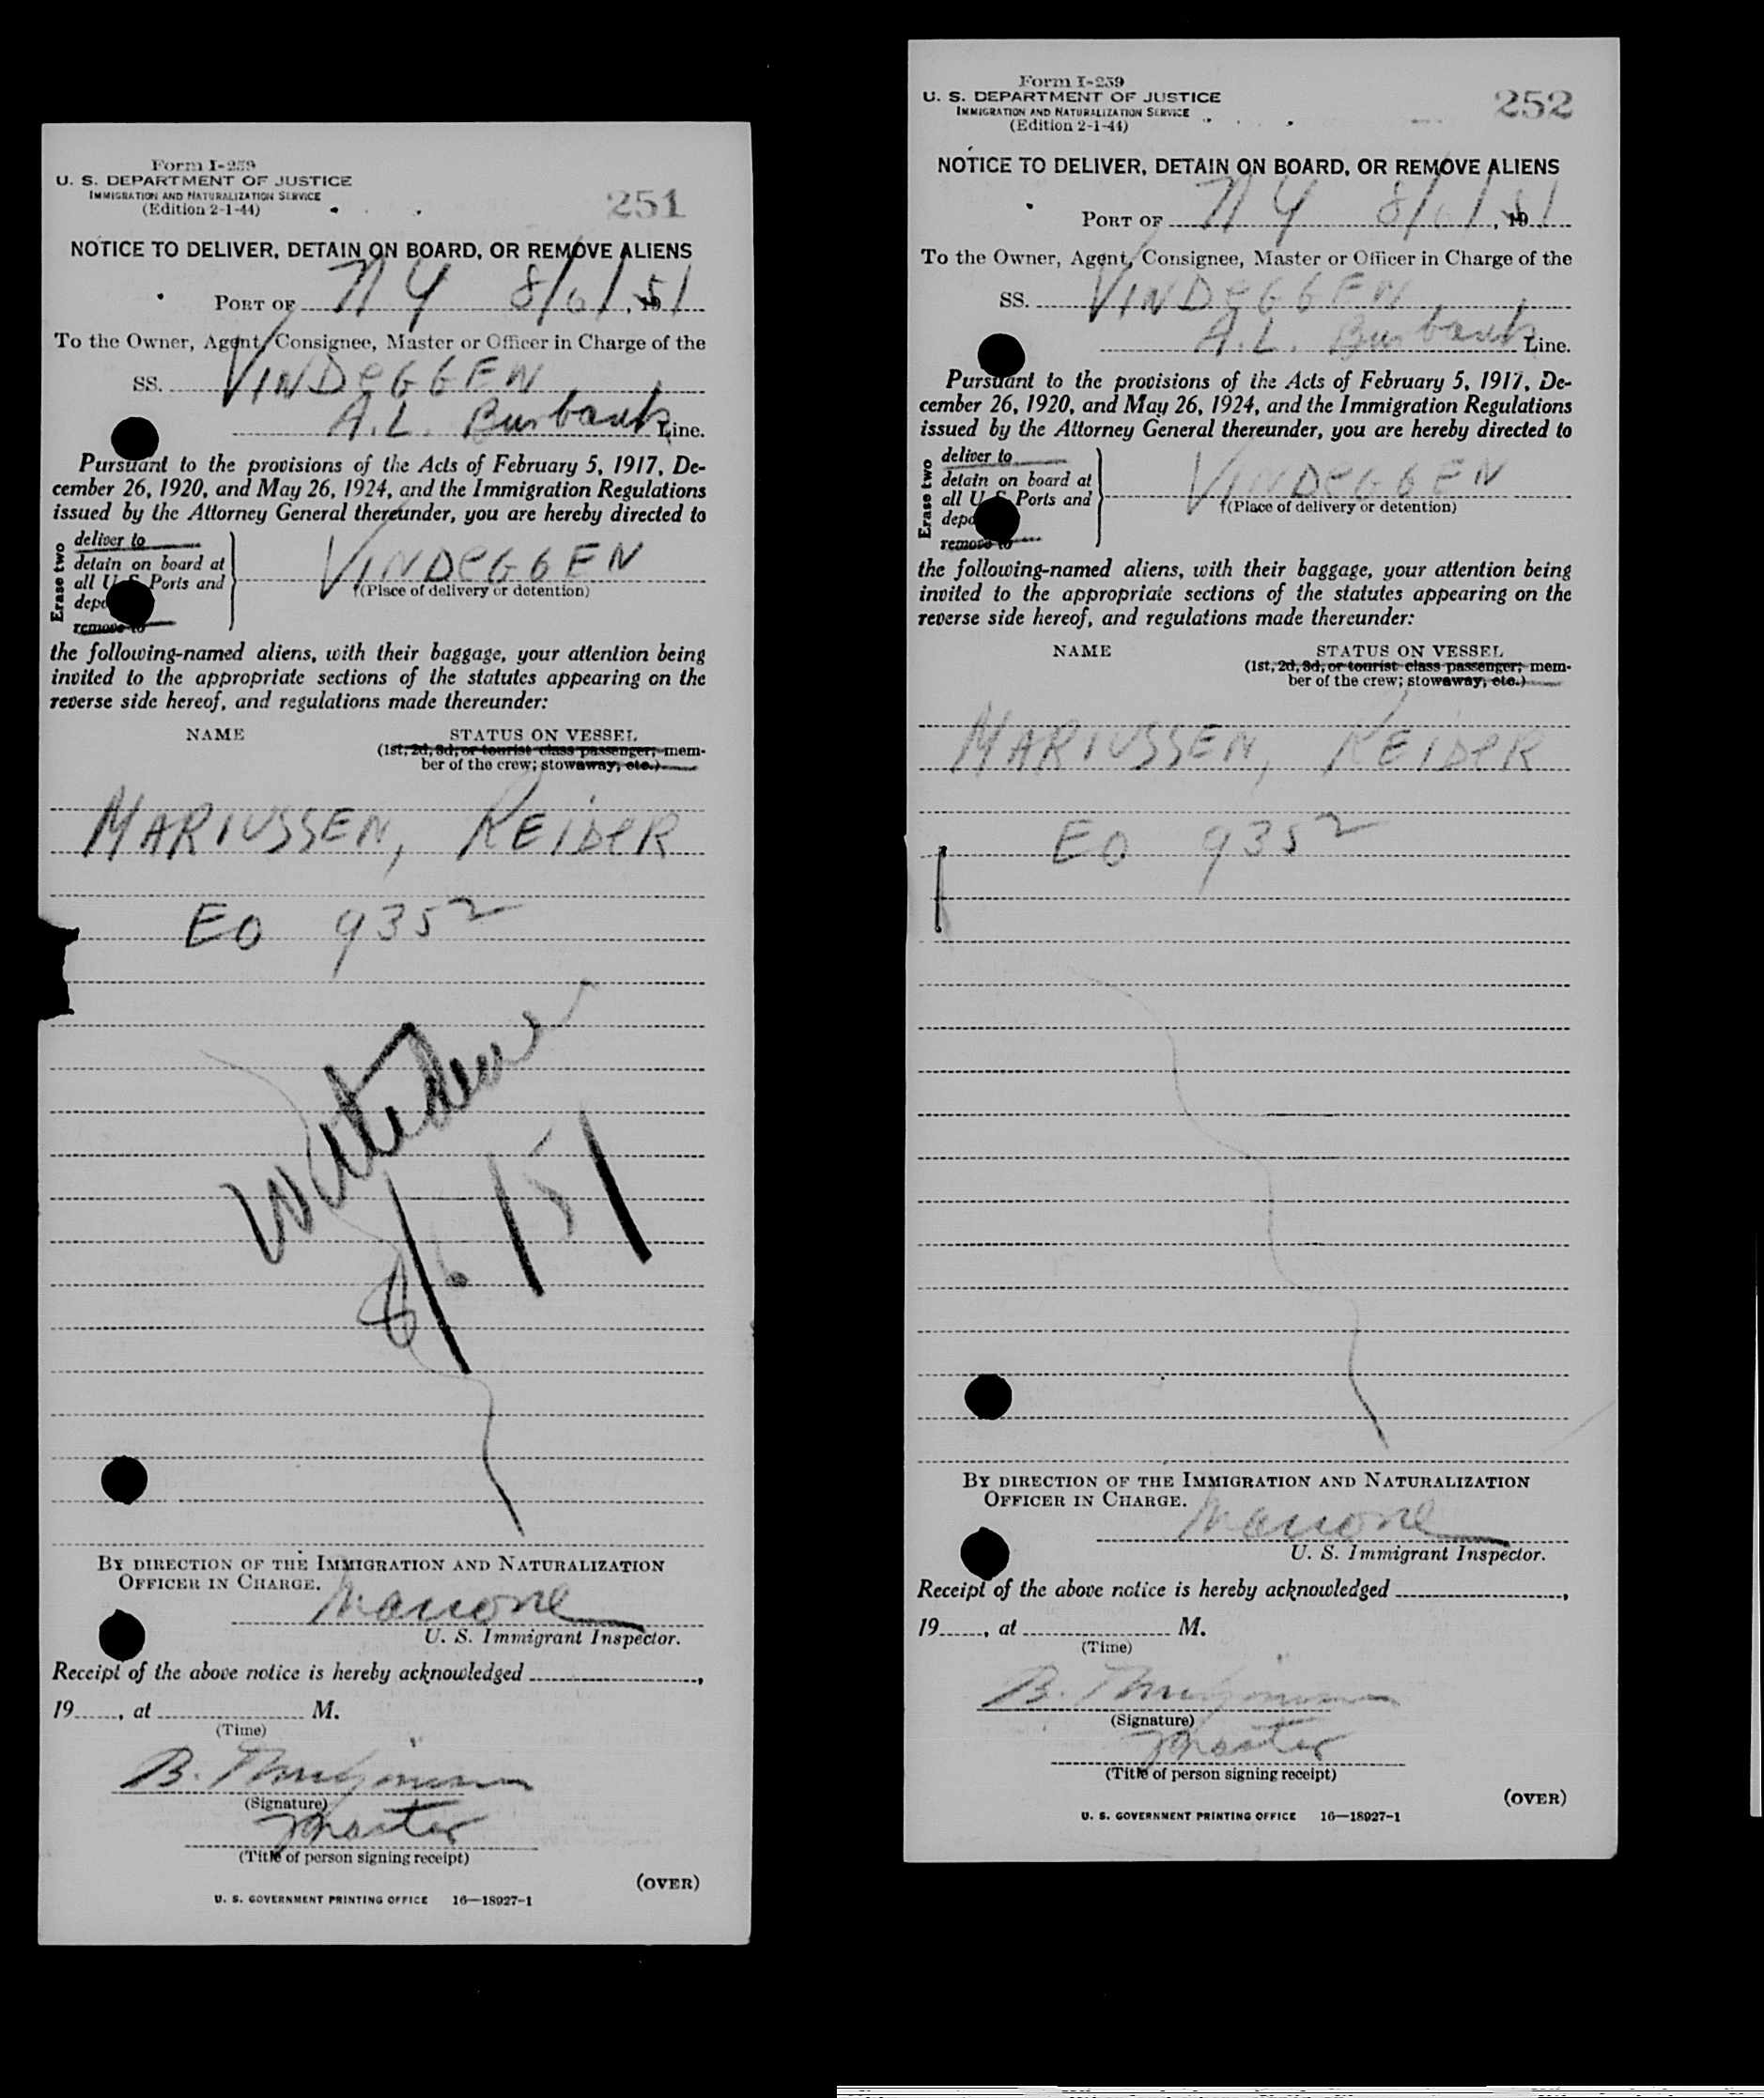 Form I-259
U. S. DEPARTMENT OF JUSTICE
IMMIGRATION AND NATURALIZATION SERVICE
(Edition 2-1-44)
251
NOTICE TO DELIVER, DETAIN ON BOARD, OR REMOVE ALIENS
PORT OF NY 8/6/, 1951
To the Owner, Agent, Consignee, Master or Officer in Charge of the
SS. VINDEGGEN
A.L. Burbank Line.
Pursuant to the provisions of the Acts of February 5, 1917, De-
cember 26, 1920, and May 26, 1924, and the Immigration Regulations
issued by the Attorney General thereunder, you are hereby directed to
Erase two
deliver to
detain on board at
all U. S. Ports and
depo
remove to
VINDEGGEN
†(Place of delivery or detention)
the following-named aliens, with their baggage, your attention being
invited to the appropriate sections of the statutes appearing on the
reverse side hereof, and regulations made thereunder:
NAME STATUS ON VESSEL
(1st, 2d, 3d, or tourist class passenger; mem-
ber of the crew; stowaway, etc.)
MARIUSSEN, REIDER
EO 9352
8/6/51
BY DIRECTION OF THE IMMIGRATION AND NATURALIZATION
OFFICER IN CHARGE.
U. S. Immigrant Inspector.
Receipt of the above notice is hereby acknowledged ,
19 , at M.
(Time)
B.
(Signature)
Master
(Title of person signing receipt)
(OVER)
U. S. GOVERNMENT PRINTING OFFICE 16—18927-1
Form I-259
U. S. DEPARTMENT OF JUSTICE
IMMIGRATION AND NATURALIZATION SERVICE
(Edition 2-1-44)
252
NOTICE TO DELIVER, DETAIN ON BOARD, OR REMOVE ALIENS
PORT OF NY 8/6/, 1951
To the Owner, Agent, Consignee, Master or Officer in Charge of the
SS. VINDEGGEN
A.L. Burbank Line.
Pursuant to the provisions of the Acts of February 5, 1917, De-
cember 26, 1920, and May 26, 1924, and the Immigration Regulations
issued by the Attorney General thereunder, you are hereby directed to
Erase two
deliver to
detain on board at
all U. S. Ports and
depo
remove to
VINDEGGEN
†(Place of delivery or detention)
the following-named aliens, with their baggage, your attention being
invited to the appropriate sections of the statutes appearing on the
reverse side hereof, and regulations made thereunder:
NAME STATUS ON VESSEL
(1st, 2d, 3d, or tourist class passenger; mem-
ber of the crew; stowaway, etc.)
MARIUSSEN, REIDER
EO 9352
BY DIRECTION OF THE IMMIGRATION AND NATURALIZATION
OFFICER IN CHARGE.
U. S. Immigrant Inspector.
Receipt of the above notice is hereby acknowledged ,
19 , at M.
(Time)
B.
(Signature)
Master
(Title of person signing receipt)
(OVER)
U. S. GOVERNMENT PRINTING OFFICE 16—18927-1